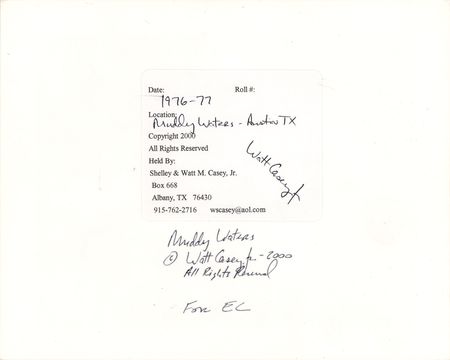 Date: Roll #:
1976-77
Location:
Muddy Waters - Austin TX
Copyright 2000
All Rights Reserved
Held By:
Shelley & Watt M. Casey, Jr.
Box 668
Albany, TX 76430
915-762-2716 wscasey@aol.com
Watt Casey Jr
Muddy Waters
© Watt Casey Jr. - 2000
All Rights Reserved
For EC